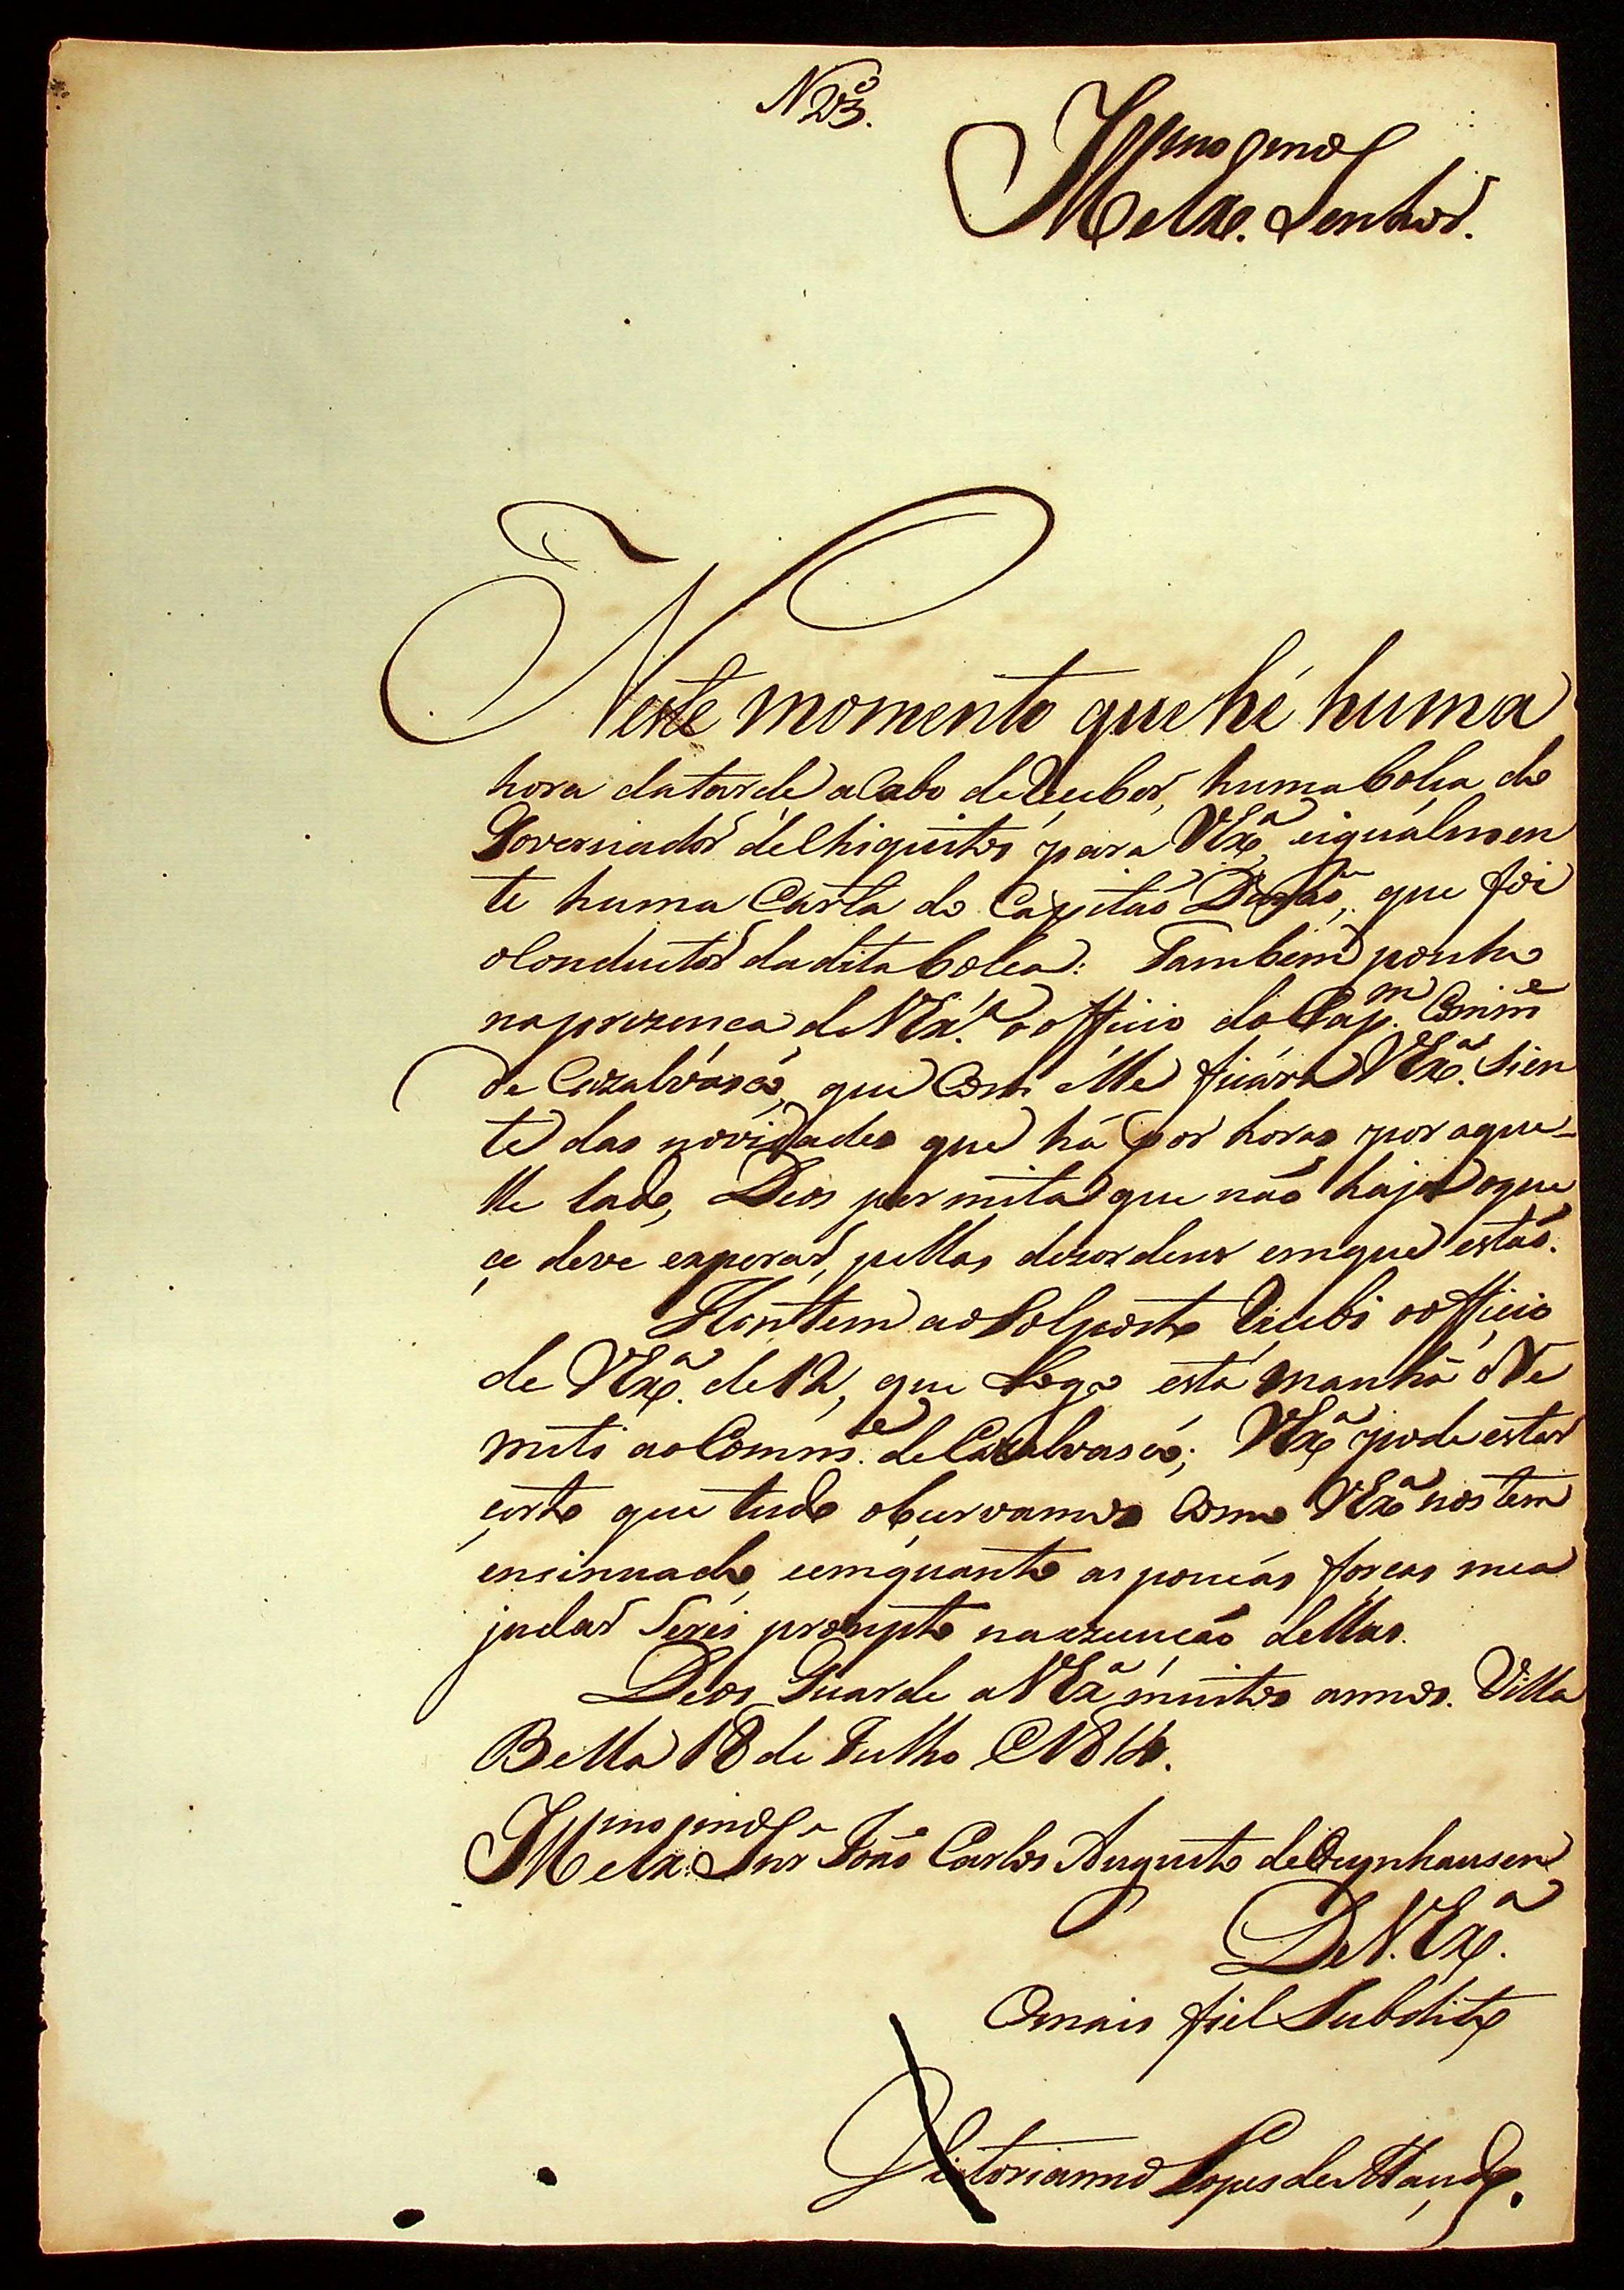 N 23.º
Illmo e Exmo
Senhor.
Neste momento que hé huma
hora da tarde acabo de Receber, huma bolça do
Governador de Chiquitos para VExª, eigualmen
te huma Carta do Capitaõ, que foi
oConductor da dita bolça: Tambem ponho
naprezença de VExª. o officio do Capm. Comme
de Cazalvasco, que Com élle ficára VExª. Sien
te das novidades que há por hora, por aque-
lle lado, Deos permita que naõ haja oque
çe deve esperar, pellas dezordens emque estaõ.
Honttem aoSolposto Recebi oofficio
de VExª. de 12, que Logo está manhã oRe
miti aoComme. de Cazalvasco; VExª pode estar
çerto que tudo obçervamos Como VExª nos tem
encinuado, eemquanto as poucas forças mea
judar Serei prompto naexzecuçaõ dellas.
Deos Guarde aVExª muitos annos. Villa
Bella 18 de Julho de 1814.
Illmo e Exmo Snr Joaõ Carlos Augusto deOeynhausen
De V. Exª.
Omais fiel Subdito
Victorianno Lopes de Maçedo.